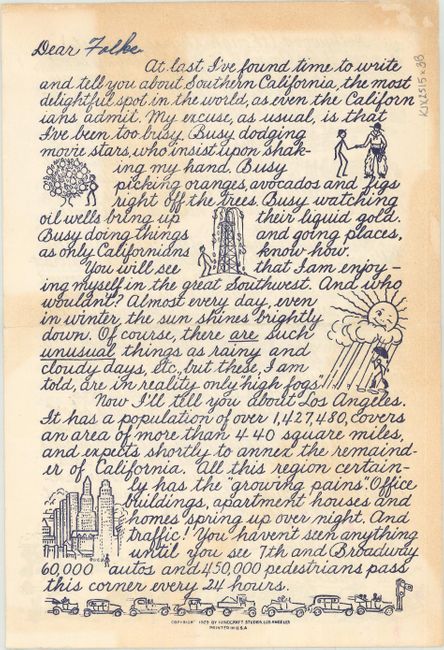 Dear Folks
At last I've found time to write
and tell you about Southern California, the most
delightful spot in the world, as even the Californ
ians admit. My excuse, as usual, is that
I've been too busy. Busy dodging
movie stars, who insist upon shak-
ing my hand. Busy
picking oranges, avocados and figs
right off the trees. Busy watching
oil wells bring up their liquid gold.
Busy doing things and going places,
as only Californians know how.
You will see that I am enjoy-
ing myself in the great Southwest. And who
wouldn't? Almost every day, even
in winter the sun shines brightly
down. Of course, there are such
unusual things as rainy and
cloudy days, etc., but these, I am
told, are in reality only "high fogs"!!
Now I'll tell you about Los Angeles.
It has a population of over 1,427,480, covers
an area of more than 440 square miles,
and expects shortly to annex the remaind-
er of California. All this region certain-
ly has the "growing pains". Office
buildings, apartment houses and
homes spring up over night. And
traffic! You haven't seen anything
until you see 7th and Broadway
60,000 autos and 450,000 pedestrians pass
this corner every 24 hours.
COPYRIGHT 1929 BY HANDCRAFT STUDIOS, LOS ANGELES
PRINTED IN U.S.A